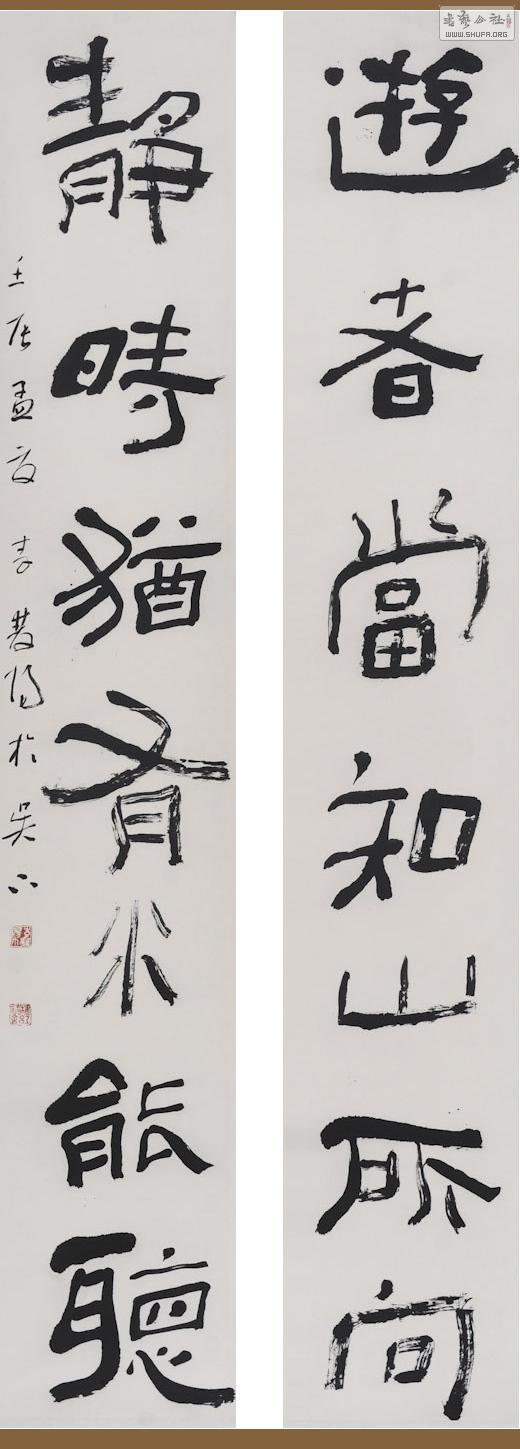 遊者當知山所向
靜時猶有水能聽
壬辰孟夏李雙陽於吳下
書藝公社
WWW.SHUFA.ORG